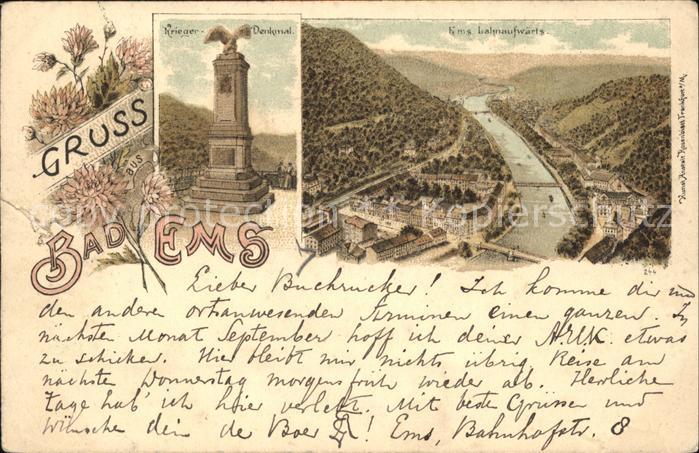 Krieger-Denkmal.
Ems Lahnaufwärts.
GRUSS
aus
BAD EMS
244
Lieber Buchrucker! Ich komme dir und
den andern ortsanwesenden Arminen einen ganzen. Im
nächsten Monat September hoff ich deiner etwas
zu schicken. Hier bleibt mir nichts übrig. Reise am
nächsten Donnerstag morgens früh wieder ab. Herrliche
Tage hab' ich hier verlebt. Mit besten Grüssen und
wünsche dein de Boer! Ems, Bahnhofstr. 8